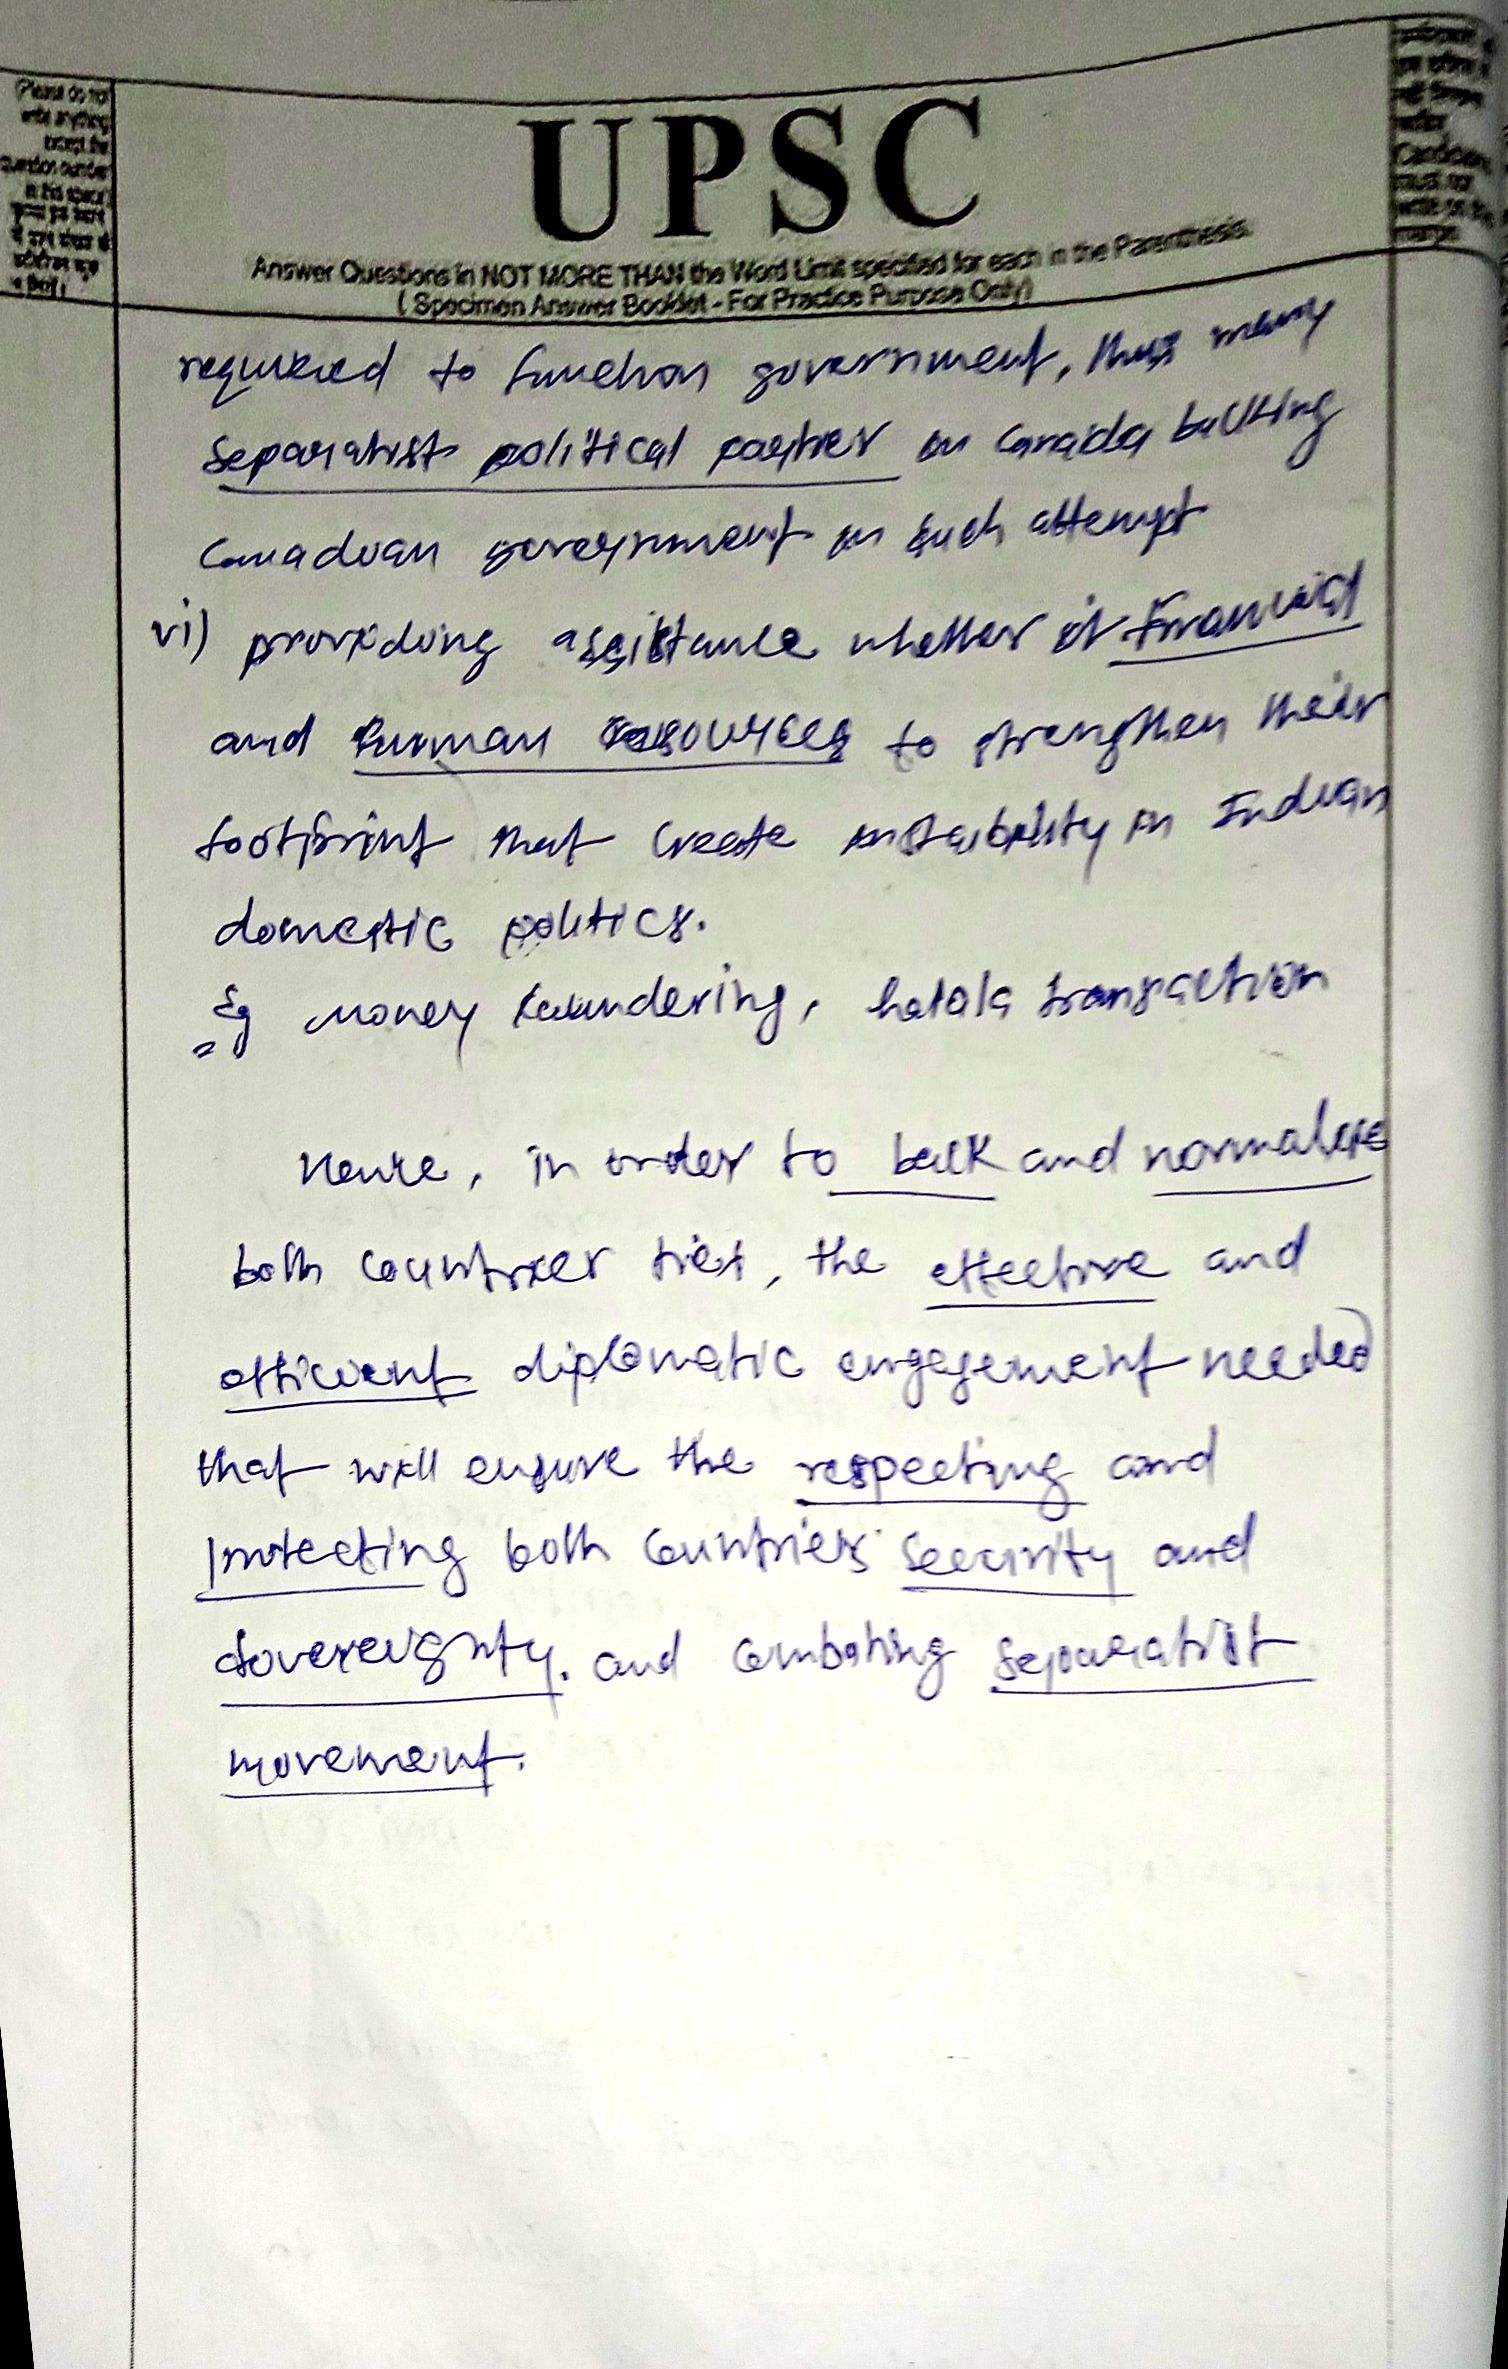 (Please do not
write anything
except the
question number
in this space)
UPSC
Answer Questions in NOT MORE THAN the Word Limit specified for each in the Parenthesis.
( Specimen Answer Booklet - For Practice Purpose Only)
Candidates
must not
write on this
margin
required to function government, thus many
separatist political parties in Canada
Canadian government in such attempt
vi) providing assistance whether it Financial
and human resources to strengthen their
footprint that create instability in Indian
domestic politics.
Eg money laundering, halala transaction
Hence, in order to back and normalise
both countries ties, the effective and
efficient diplomatic engagement needed
that will ensure the respecting and
protecting both countries' security and
sovereignty. and combating separatist
movement.